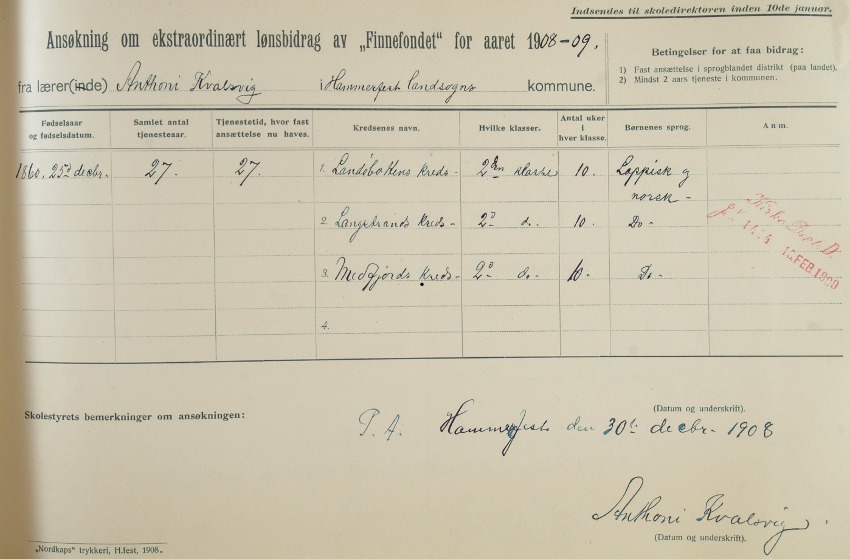 Indsendes til skoledirektøren inden 10de januar.
Ansøkning om ekstraordinært lønsbidrag av „Finnefondet“ for aaret 1908-09.
fra lærer(inde) Anthoni Kvalsvig i Hammerfest landsogns kommune.
Betingelser for at faa bidrag:
1) Fast ansættelse i sprogblandet distrikt (paa landet).
2) Mindst 2 aars tjeneste i kommunen.
Fødselsaar og fødselsdatum. Samlet antal tjenesteaar. Tjenestetid, hvor fast ansættelse nu haves. Kredsenes navn. Hvilke klasser. Antal uker i hver klasse. Børnenes sprog. Anm.
1860. 25de decbr. 27. 27. 1. Landsbottens Kreds - 2den klasse 10. Lappisk og
norsk -
2. Langstrands Kreds - 2d do. - 10. Do -
3. Medfjords Kreds - 2d do. - 10. - Do -
4.
Kirke Dept D.
15 FEB 1909
Skolestyrets bemerkninger om ansøkningen:
(Datum og underskrift).
P. A. Hammerfest den 30te decbr. 1908
Anthoni Kvalsvig.
(Datum og underskrift).
„Nordkaps“ trykkeri, H.fest, 1908.